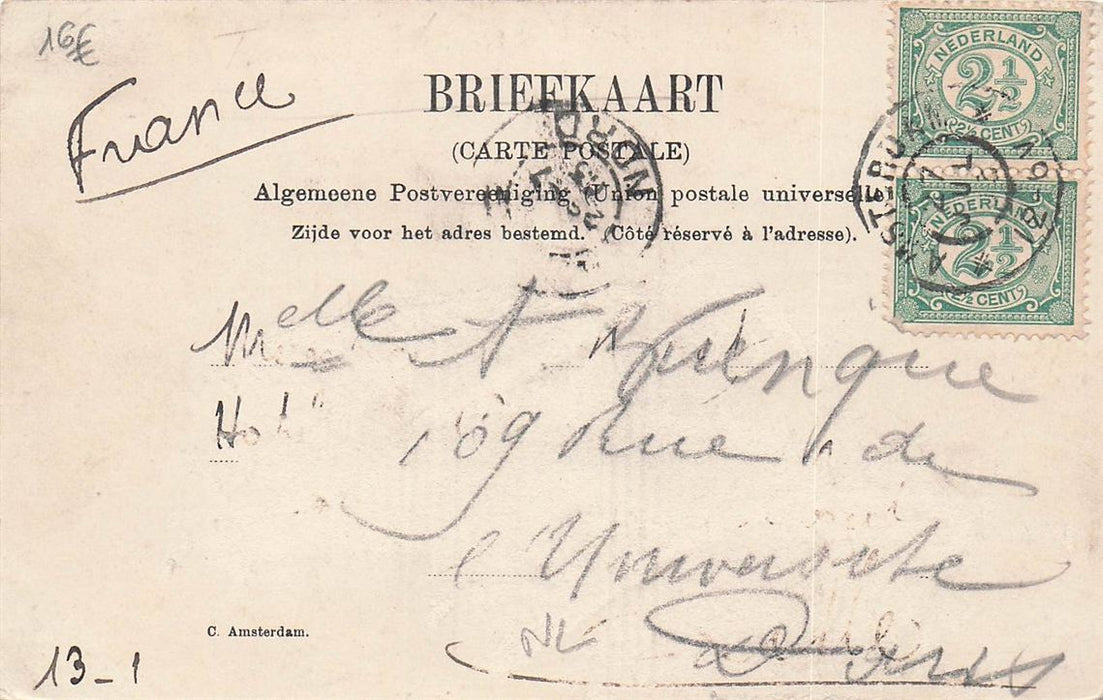 16€
France
BRIEFKAART
(CARTE POSTALE)
Algemeene Postvereeniging (Union postale universelle)
Zijde voor het adres bestemd. (Côté réservé à l'adresse).
NEDERLAND
2½
2½ CENT
NEDERLAND
2½
2½ CENT
AMSTERDAM
NORD
Melle
109 Rue de
l'Université
Paris
NL
C. Amsterdam.
13-1